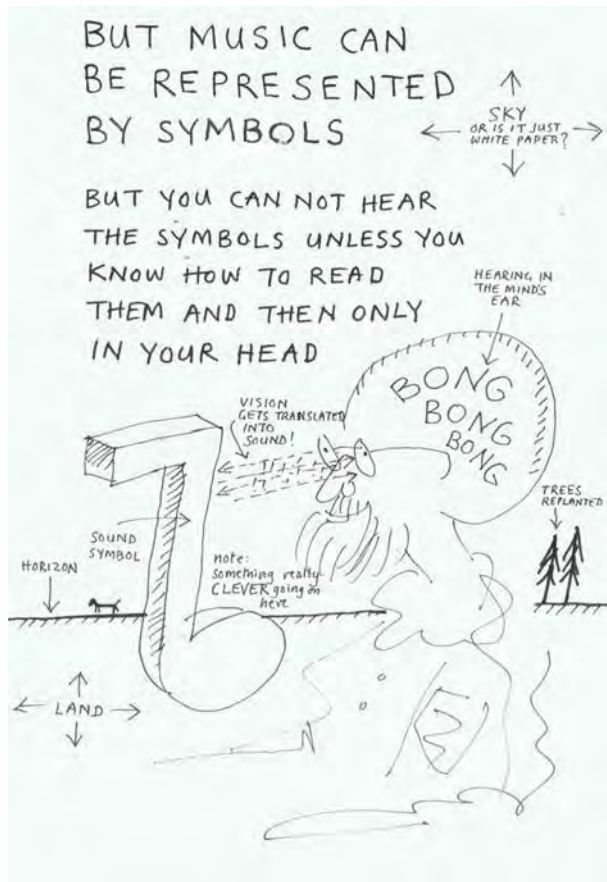 BUT MUSIC CAN
BE REPRESENTED
BY SYMBOLS
SKY
OR IS IT JUST
WHITE PAPER?
BUT YOU CAN NOT HEAR
THE SYMBOLS UNLESS YOU
KNOW HOW TO READ
THEM AND THEN ONLY
IN YOUR HEAD
HEARING IN
THE MIND'S
EAR
BONG
BONG
BONG
VISION
GETS TRANSLATED
INTO
SOUND!
TREES
REPLANTED
SOUND
SYMBOL
HORIZON
note:
something really
CLEVER going on
here
LAND